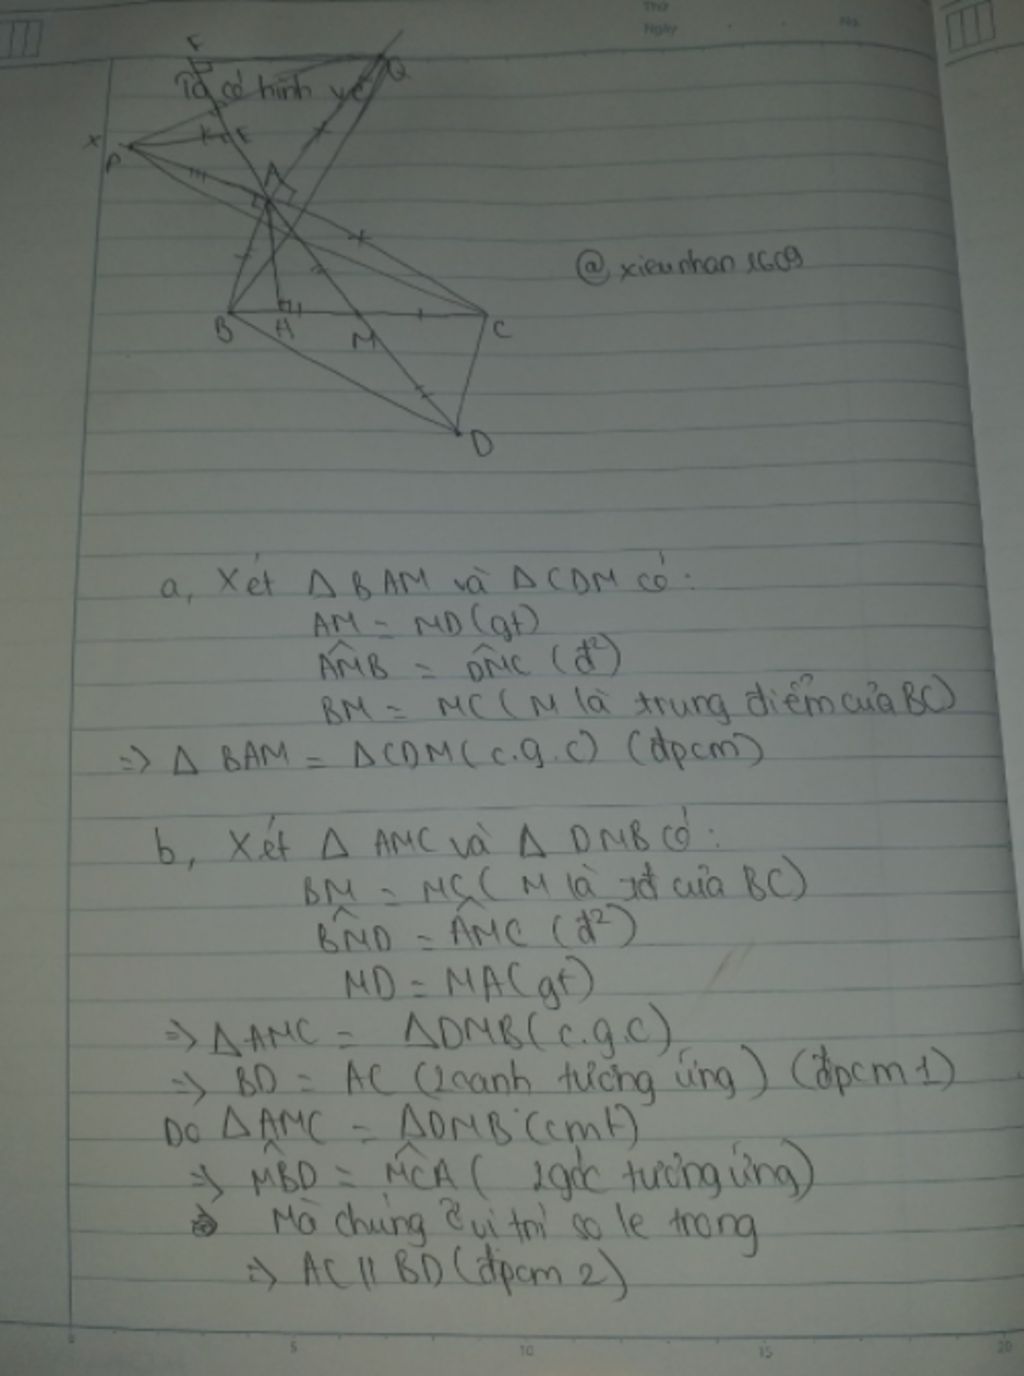 Thứ
Ngày
No.
F
Q
Ta có hình vẽ
x
P
E
A
@xieunhan1609
B
H
M
C
D
a, Xét Δ BAM và Δ CDM có:
AM = MD (gt)
AM̂B = DM̂C (đ²)
BM = MC (M là trung điểm của BC)
=> Δ BAM = Δ CDM (c.g.c) (đpcm)
b, Xét Δ AMC và Δ DMB có:
BM = MC (M là tđ của BC)
BM̂D = AM̂C (đ²)
MD = MA (gt)
=> Δ AMC = Δ DMB (c.g.c)
=> BD = AC (2 cạnh tương ứng) (đpcm 1)
Do Δ AMC = Δ DMB (cmt)
=> MB̂D = MĈA (2 góc tương ứng)
Mà chúng ở vị trí so le trong
=> AC // BD (đpcm 2)
5
10
15
20